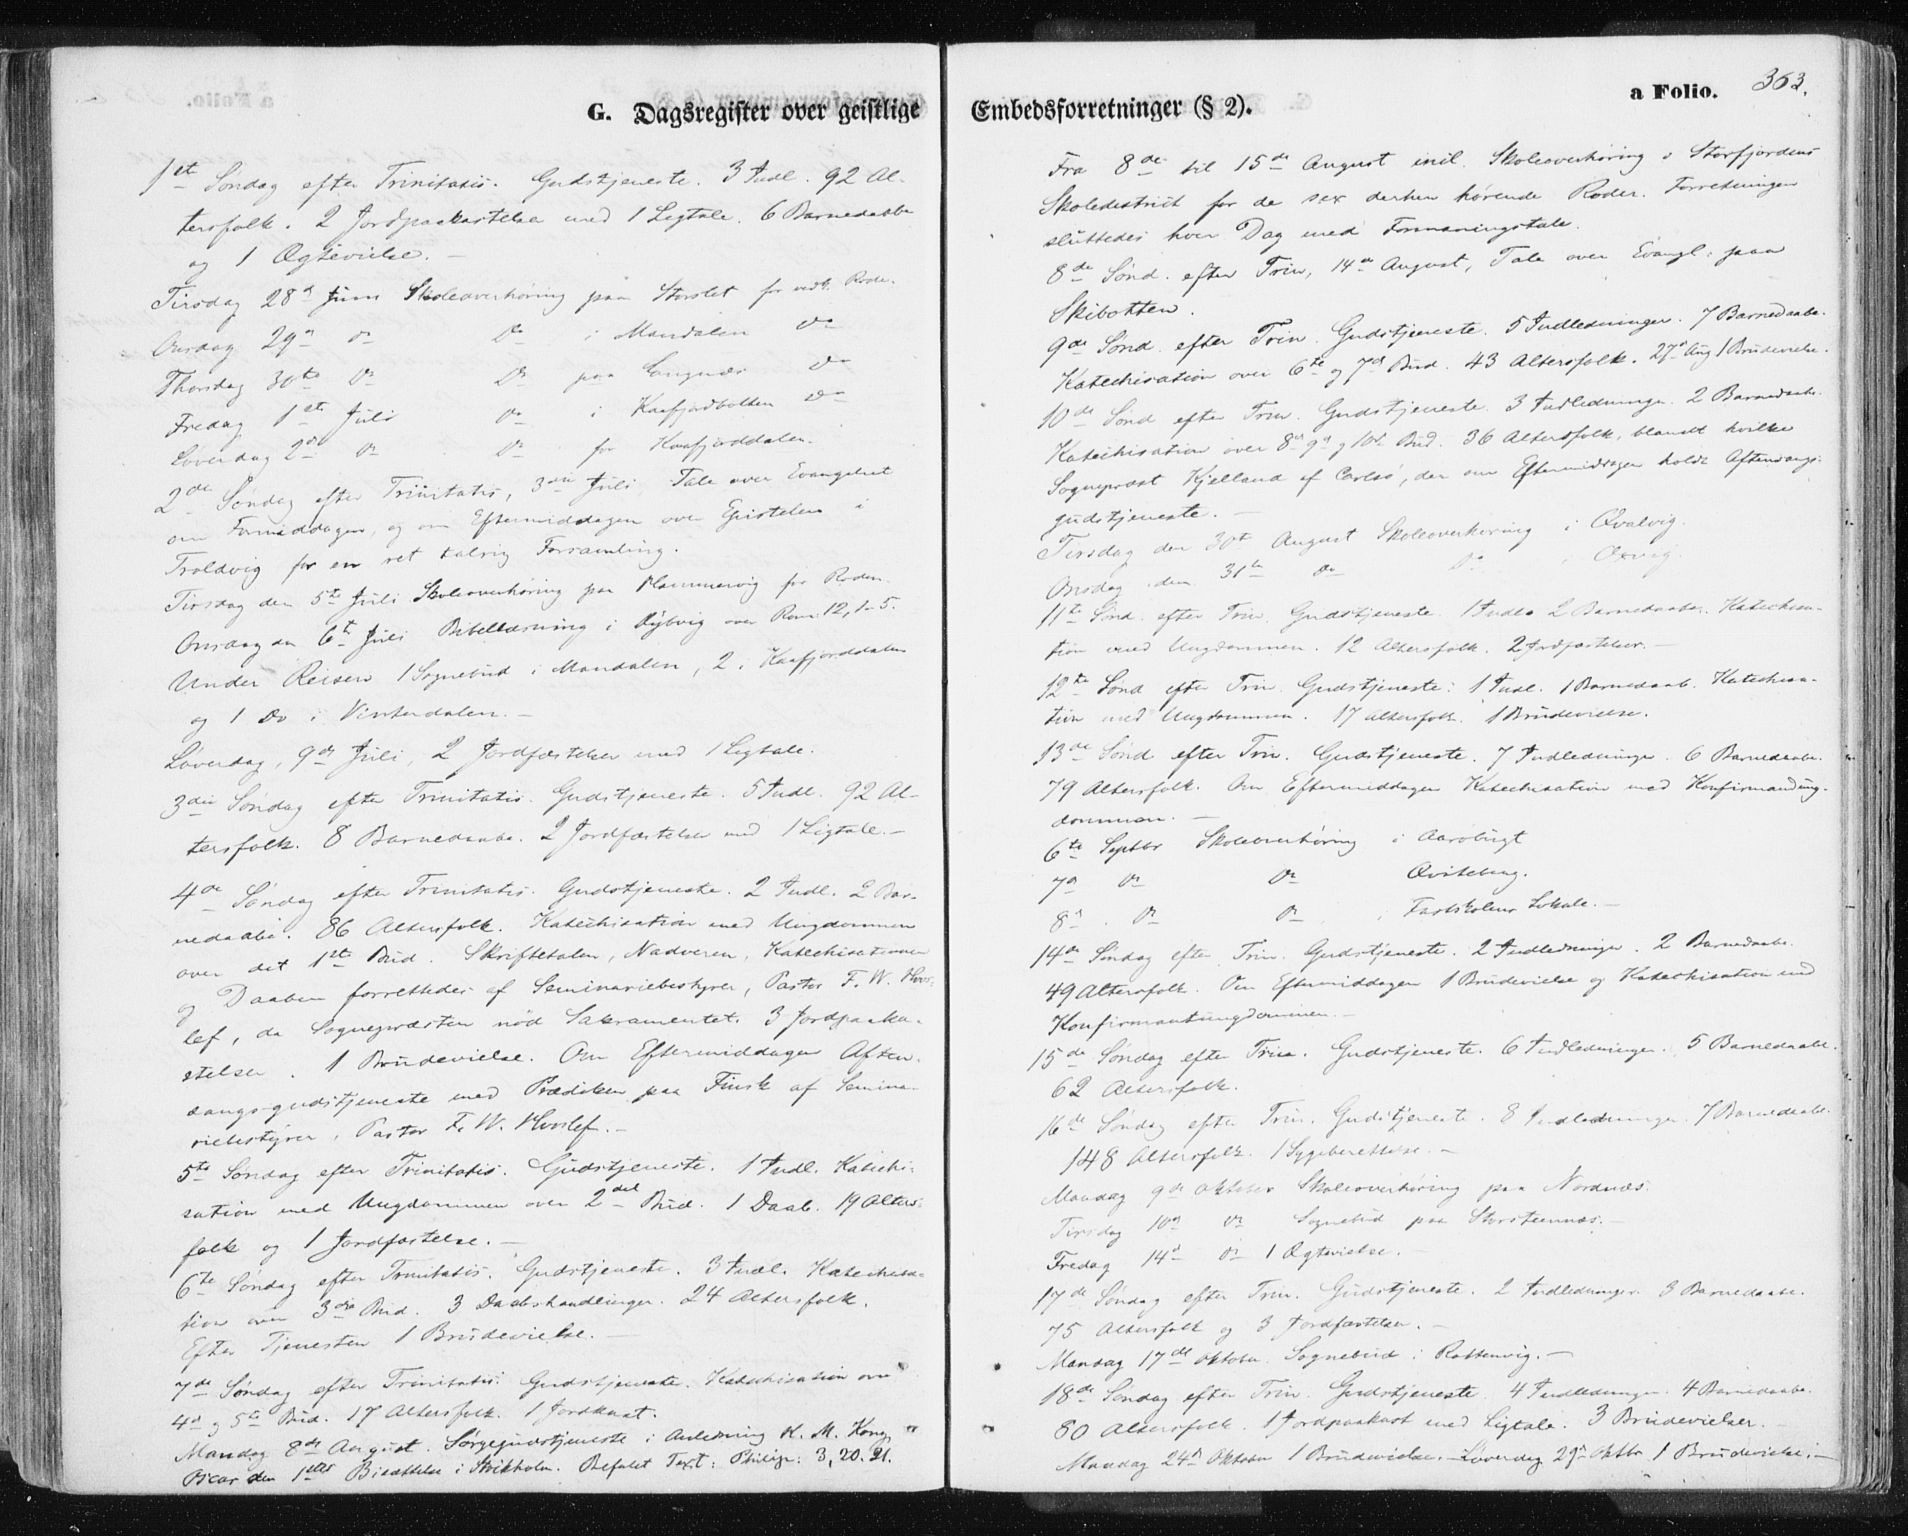 G. Dagsregister over geistlige
1st Søndag efter Trinitatis. Gudstjeneste. 3 Indl. 92 Al-
tersfolk. 2 Jordpaakastelser med 1 Ligtale. 6 Barnedaabe
og 1 Ægtevielse. —
Tirsdag 28d Juni Skoleoverhøring paa Storslet for vedk. Rode.
Onsdag 29d Do Do i Mandalen Do
Thorsdag 30te Do Do paa Langnæs Do
Fredag 1ste Juli Do i Kaafjordbotten Do
Løverdag 2d Do Do for Kaafjorddalen.
2den Søndag efter Trinitatis, 3die Juli Tale over Evangeliet
om Formiddagen, og om Eftermiddagen over Epistelen i
Troldvig for en ret talrig Forsamling.
Tirsdag den 5te Juli Skoleoverhøring paa Hammervig for Roden.
Onsdag den 6te Juli Bibellæsning i Dybvig over Rom. 12, 1-5.
Under Reisen 1 Sognebud i Mandalen, 2 i Kaafjorddalen
og 1 Do i Vinterdalen. —
Løverdag, 9de Juli, 2 Jordfæstelser med 1 Ligtale.
3die Søndag efter Trinitatis. Gudstjeneste. 5 Indl. 92 Al-
tersfolk. 8 Barnedaabe. 2 Jordfæstelser med 1 Ligtale. —
4de Søndag efter Trinitatis. Gudstjeneste. 2 Indl. 2 Bar-
nedaabe. 86 Altersfolk. Katechisation med Ungdommen
over det 1ste Bud. Skriftetalen, Nadveren, Katechisationen
og Daaben forrettedes af Seminariebestyrer, Pastor F. W. Hvos-
lef, da Sognepræsten nød Sakramentet. 3 Jordpaaka-
stelser. 1 Brudevielse. Om Eftermiddagen Aften-
sangs-gudstjeneste med Prædiken paa Finsk af Semina-
riebestyrer, Pastor F. W. Hvoslef. —
5te Søndag efter Trinitatis. Gudstjeneste. 1 Indl. Katechi-
sation med Ungdommen over 2det Bud. 1 Daab. 19 Alters-
folk og 1 Jordfæstelse. —
6te Søndag efter Trinitatis. Gudstjeneste. 3 Indl. Katechisa-
tion over 3die Bud. 3 Daabshandlinger. 24 Altersfolk.
Efter Tjenesten 1 Brudevielse. —
7de Søndag efter Trinitatis. Gudstjeneste. Katechisation over
4d og 5te Bud. 17 Altersfolk. 1 Jordkast.
Mandag 8de August. Sørgegudstjeneste i Anledning H. M. Kong
Oscar den 1stes Bisættelse i Stokholm. Befalet Text: Philip: 3, 20. 21.
Embedsforretninger (§ 2).
a Folio. 363.
Fra 8de til 15de August incl. Skoleoverhøring i Storfjordens
Skoledistrict for de sex derhen hørende Roder. Forretningen
sluttedes hver Dag med Formaningstale.
8de Sønd. efter Trin, 14de August, Tale over Evangl: paa
Skibotten.
9de Sønd. efter Trin. Gudstjeneste. 5 Indledninger. 7 Barnedaabe.
Katechisation over 6te og 7de Bud. 43 Altersfolk. 27d Aug 1 Brudevielse.
10de Sønd efter Trin. Gudstjeneste. 3 Indledninger. 2 Barnedaabe.
Katechisation over 8d 9d og 10de Bud. 36 Altersfolk, blandt hvilke
Sognepræst Kjelland af Carlsø, der om Eftermiddagen holdt Aftensangs-
gudstjeneste. —
Tirsdag den 30te August Skoleoverhøring i Qvalvig.
Onsdag den 31te Do Do i Oxvig.
11te Sønd. efter Trin. Gudstjeneste. 1 Indl. 2 Barnedaabe. Katechisa-
tion med Ungdommen. 12 Altersfolk. 2 Jordfæstelser. —
12te Sønd efter Trin. Gudstjeneste: 1 Indl. 1 Barnedaab. Katechisa-
tion med Ungdommen. 17 Altersfolk. 1 Brudevielse.
13de Sønd efter Trin. Gudstjeneste. 7 Indledninger. 6 Barnedaabe.
79 Altersfolk. Om Eftermiddagen Katechisation med Konfirmandung-
dommen. —
6te Septbr Skoleoverhøring i Aarøbugt
7d Do Do Qviteberg.
8d Do Do i Fastskolens Lokale. —
14de Søndag efter Trin. Gudstjeneste. 2 Indledninger. 2 Barnedaabe.
49 Altersfolk. Om Eftermiddagen 1 Brudevielse og Katechisation med
Konfirmantungdommen. —
15de Søndag efter Trin. Gudstjeneste. 6 Indledninger. 5 Barnedaabe.
62 Altersfolk.
16de Søndag efter Trin. Gudstjeneste. 8 Indledninger. 7 Barnedaabe.
148 Altersfolk. 1 Sygeberettelse. —
Mandag 9de Oktober Skoleoverhøring paa Nordnæs.
Tirsdag 10d Do Sognebud paa Storsteennæs. —
Fredag 14d Do 1 Ægtevielse. —
17de Søndag efter Trin. Gudstjeneste. 2 Indledninger. 3 Barnedaabe.
75 Altersfolk og 3 Jordfæstelser. —
Mandag 17de Oktober. Sognebud i Rottenvig. —
18de Søndag efter Trin. Gudstjeneste. 4 Indledninger. 4 Barnedaabe.
80 Altersfolk. 1 Jordpaakast med Ligtale. 3 Brudevielser. —
Mandag 24d Oktober 1 Brudevielse. — Løverdag 29d Oktbr 1 Brudevielse. —